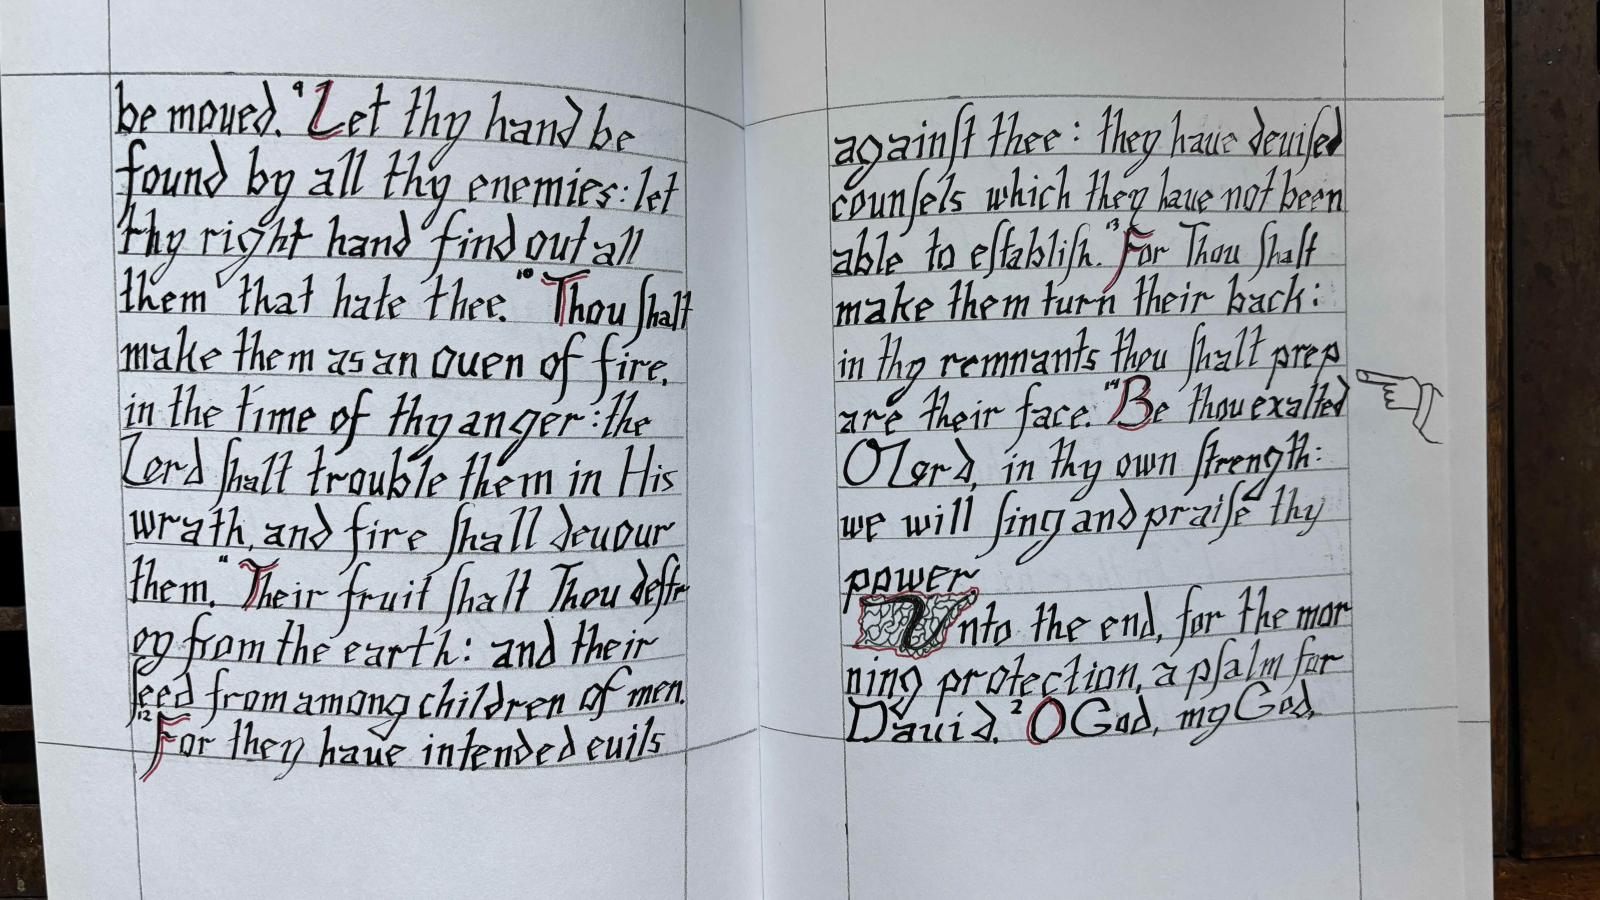 be moued. ⁹Let thy hand be
found by all thy enemies: let
thy right hand find out all
them that hate thee. ¹⁰Thou ſhalt
make them as an ouen of fire,
in the time of thy anger: the
Lord ſhalt trouble them in His
wrath, and fire ſhall deuour
them. ¹¹Their fruit ſhalt Thou deſtr
oy from the earth: and their
ſeed from among children of men.
¹²For they haue intended euils
againſt thee: they haue deuiſed
counſels which they haue not been
able to eſtabliſh. ¹³For Thou ſhalt
make them turn their back:
in thy remnants thou ſhalt prep
are their face. ¹⁴Be thou exalted
O Lord, in thy own ſtrength:
we will ſing and praiſe thy
power
Vnto the end, for the mor
ning protection, a pſalm for
Dauid. ²O God, my God,